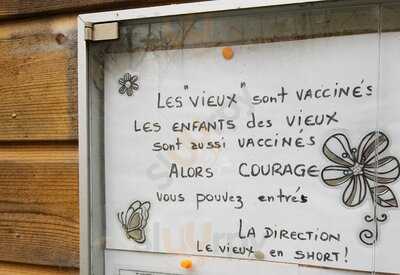 Les "vieux" sont vaccinés
Les enfants des vieux
sont aussi vaccinés
Alors courage
vous pouvez entrés
La direction
Le vieux en short !